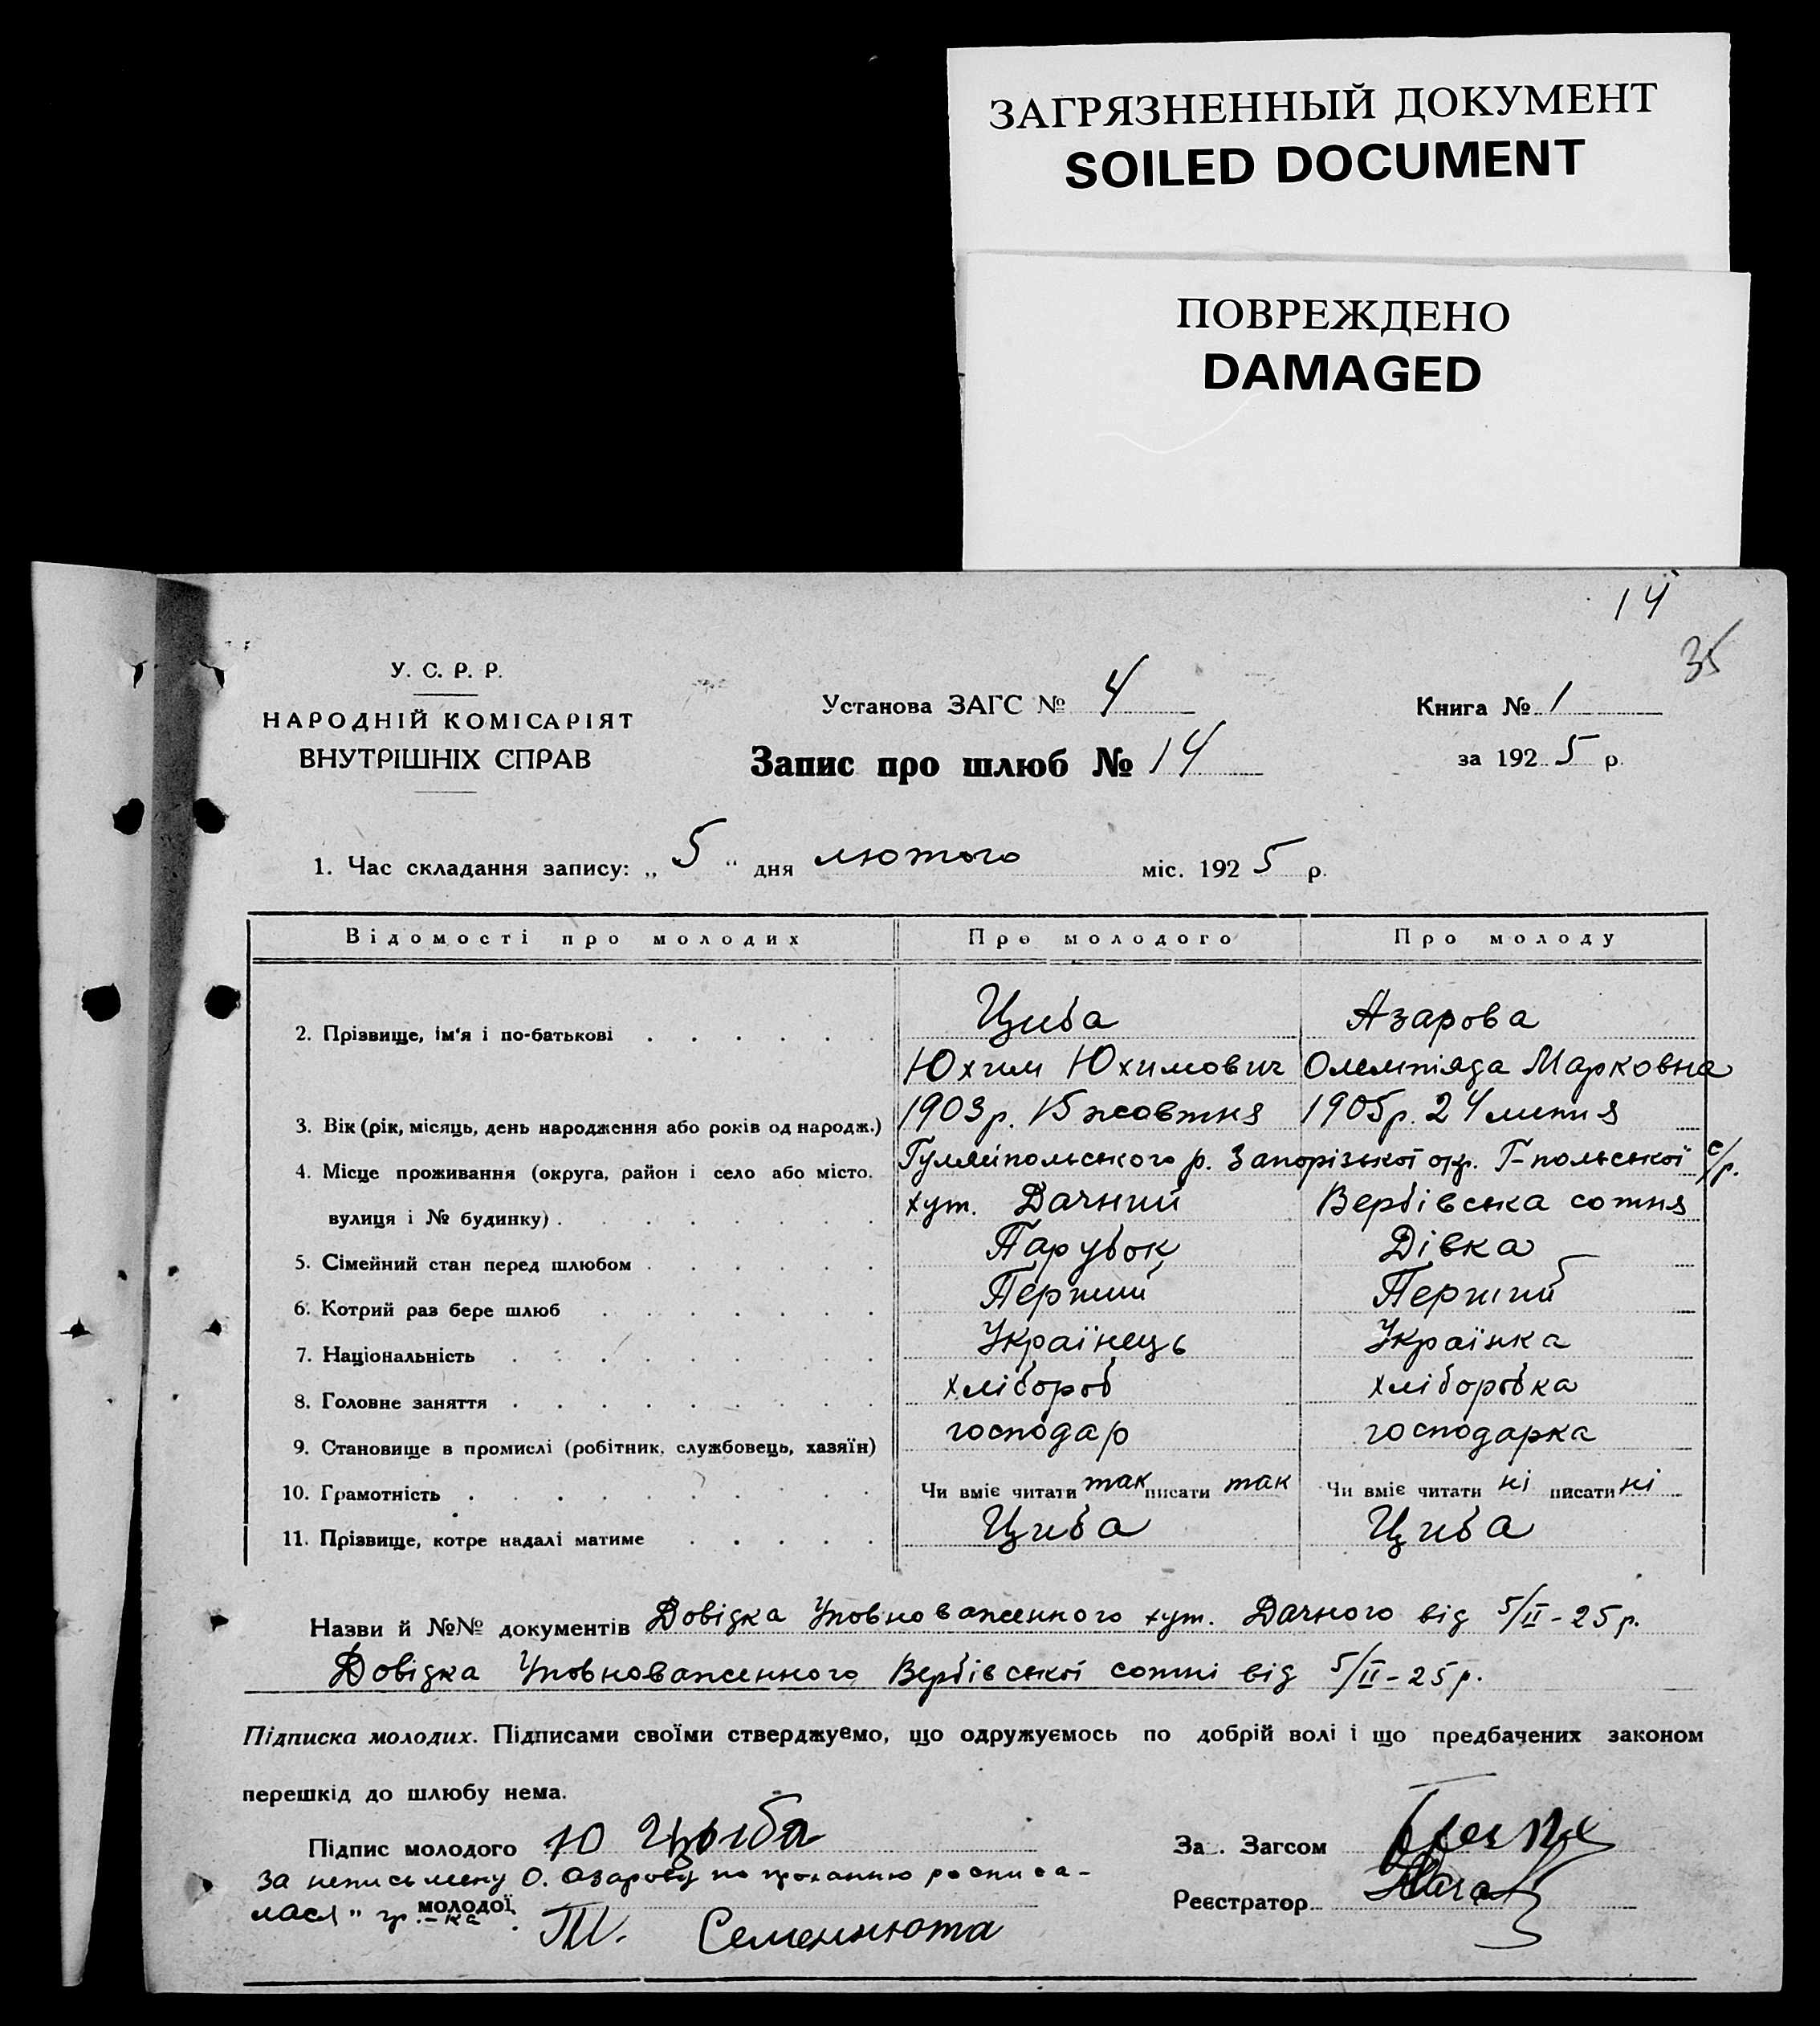 ЗАГРЯЗНЕННЫЙ ДОКУМЕНТ
SOILED DOCUMENT
ПОВРЕЖДЕНО
DAMAGED
14
35
У. С. Р. Р.
НАРОДНІЙ КОМІСАРІЯТ
ВНУТРІШНІХ СПРАВ
Установа ЗАГС № 4
Запис про шлюб № 14
Книга № 1
за 1925 р.
1. Час складання запису: „ 5 “ дня лютого міс. 1925 р.
Відомості про молодих Про молодого Про молоду
2. Прізвище, ім'я і по-батькові Циба Азарова
Юхим Юхимович Олемпіяда Марковна
3. Вік (рік, місяць, день народження або років од народж.) 1903р. 15 жовтня 1905р. 24 липня
4. Місце проживання (округа, район і село або місто, Гуляйпольського р. Запорізької окр. Г-польської с/р.
вулиця і № будинку) хут. Дачний Вербівська сотня
5. Сімейний стан перед шлюбом Парубок Дівка
6. Котрий раз бере шлюб Перший Перший
7. Національність Українець Українка
8. Головне заняття хлібороб хліборобка
9. Становище в промислі (робітник, службовець, хазяїн) господар господарка
10. Грамотність Чи вміє читати так писати так Чи вміє читати ні писати ні
11. Прізвище, котре надалі матиме Циба Циба
Назви й №№ документів Довідка Уповноваженного хут. Дачного від 5/II-25р.
Довідка Уповноваженного Вербівської сотні від 5/II-25р.
Підписка молодих. Підписами своїми стверджуемо, що одружуємось по добрій волі і що предбачених законом
перешкід до шлюбу нема.
Підпис молодого Ю Цыба
За неписьмену О. Азарову по проханню росписа-
лася" гр.-ка
молодої
Семеннюта
За. Загсом
Реєстратор